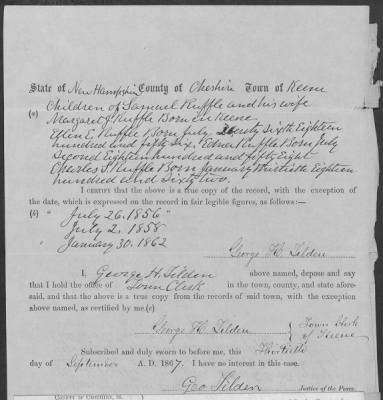 State of New Hampshire County of Cheshire Town of Keene
(a) Children of Samuel Ruffle and his wife
Margaret J. Ruffle Born in Keene
Ellen E. Ruffle Born July Twenty Sixth Eighteen
hundred and fifty six, Edna Ruffle Born July
Second Eighteen hundred and fifty Eight
Charles S. Ruffle Born January Thirtieth Eighteen
hundred and Sixty two.
I CERTIFY that the above is a true copy of the record, with the exception
of the date, which is expressed on the record in fair legible figures, as follows:—
(b) " July 26. 1856 "
" July 2. 1858
" January 30. 1862
George H. Tilden
I, George H. Tilden above named, depose and say
that I hold the office of Town Clerk in the town, county, and state afore-
said, and that the above is a true copy from the records of said town, with the exception
above named, as certified by me (c)
George H. Tilden { Town Clerk
of Keene
Subscribed and duly sworn to before me, this Thirtieth
day of September A. D. 1867. I have no interest in this case.
Geo Tilden
Justice of the Peace.